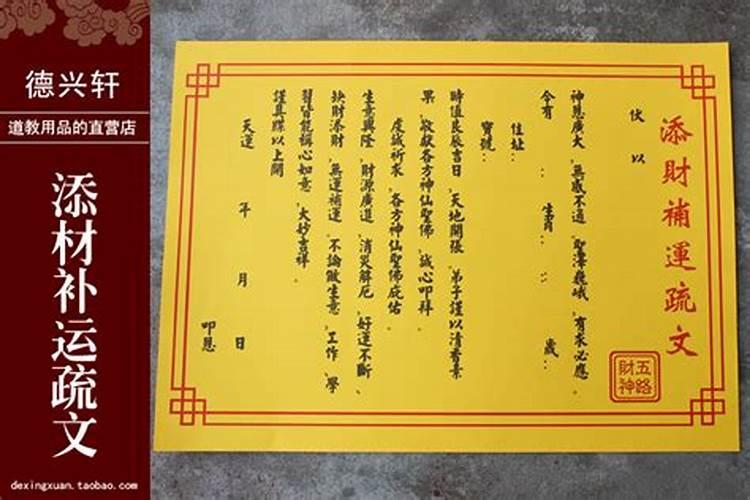 德兴轩
道教用品的直营店
添材补运疏文
dexingxuan.taobao.com
添財補運疏文
五路
財神
伏以
神恩廣大,無感不通,聖澤巍峨,有求必應。
今有:生肖::歲:
住址:
寶號:
時值良辰吉日,天地開張,弟子謹以清香素
果,敬獻各方神仙聖佛,誠心叩拜
虔誠祈求,各方神仙聖佛庇佑
生意興隆,財源廣進,消災解厄,好運不斷、
缺財添財,無運補運,不論做生意,工作,學
習皆能稱心如意,大妙吉祥。
謹具牒以上聞
天運 年 月 日
叩恩